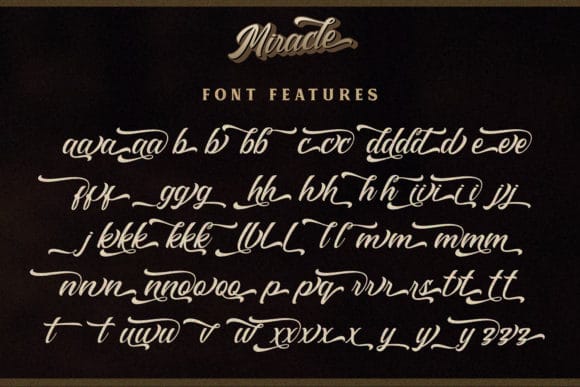 Miracle
FONT FEATURES
aava aa b b bb c cvc dddd d e eve
fff ggvg hh hvh h h ivi i i jvj
j kvkk kkk lvl l l l mvm mmm
nnvn nnovoo p pq rvr rs tvt tt
t t uuvu v w xvxvx x y y y zzz